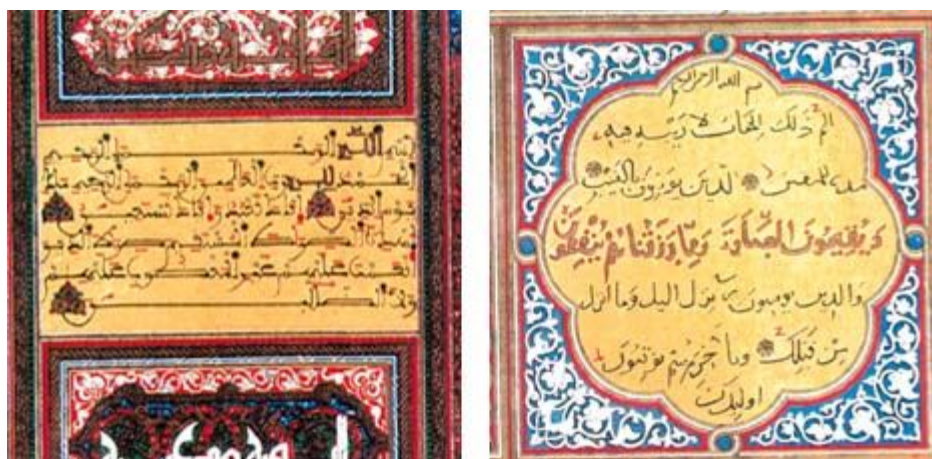 بسم الله الرحمن الرحيم
الحمد لله رب العالمين الرحمن الرحيم ملك
يوم الدين إياك نعبد وإياك نستعين
اهدنا الصراط المستقيم صراط الذين
أنعمت عليهم غير المغضوب عليهم
ولا الضالين
بسم الله الرحمن الرحيم
الم ذلك الكتاب لا ريب فيه
هدى للمتقين الذين يؤمنون بالغيب
ويقيمون الصلوة ومما رزقناهم ينفقون
والذين يؤمنون بما أنزل إليك وما أنزل
من قبلك وبالآخرة هم يوقنون
أولئك